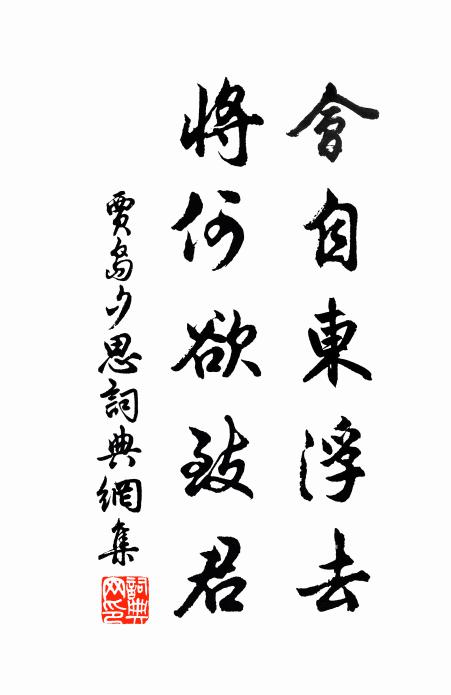 會自東浮去
將何欲致君
賈島夕思詞典網集
詞典網印